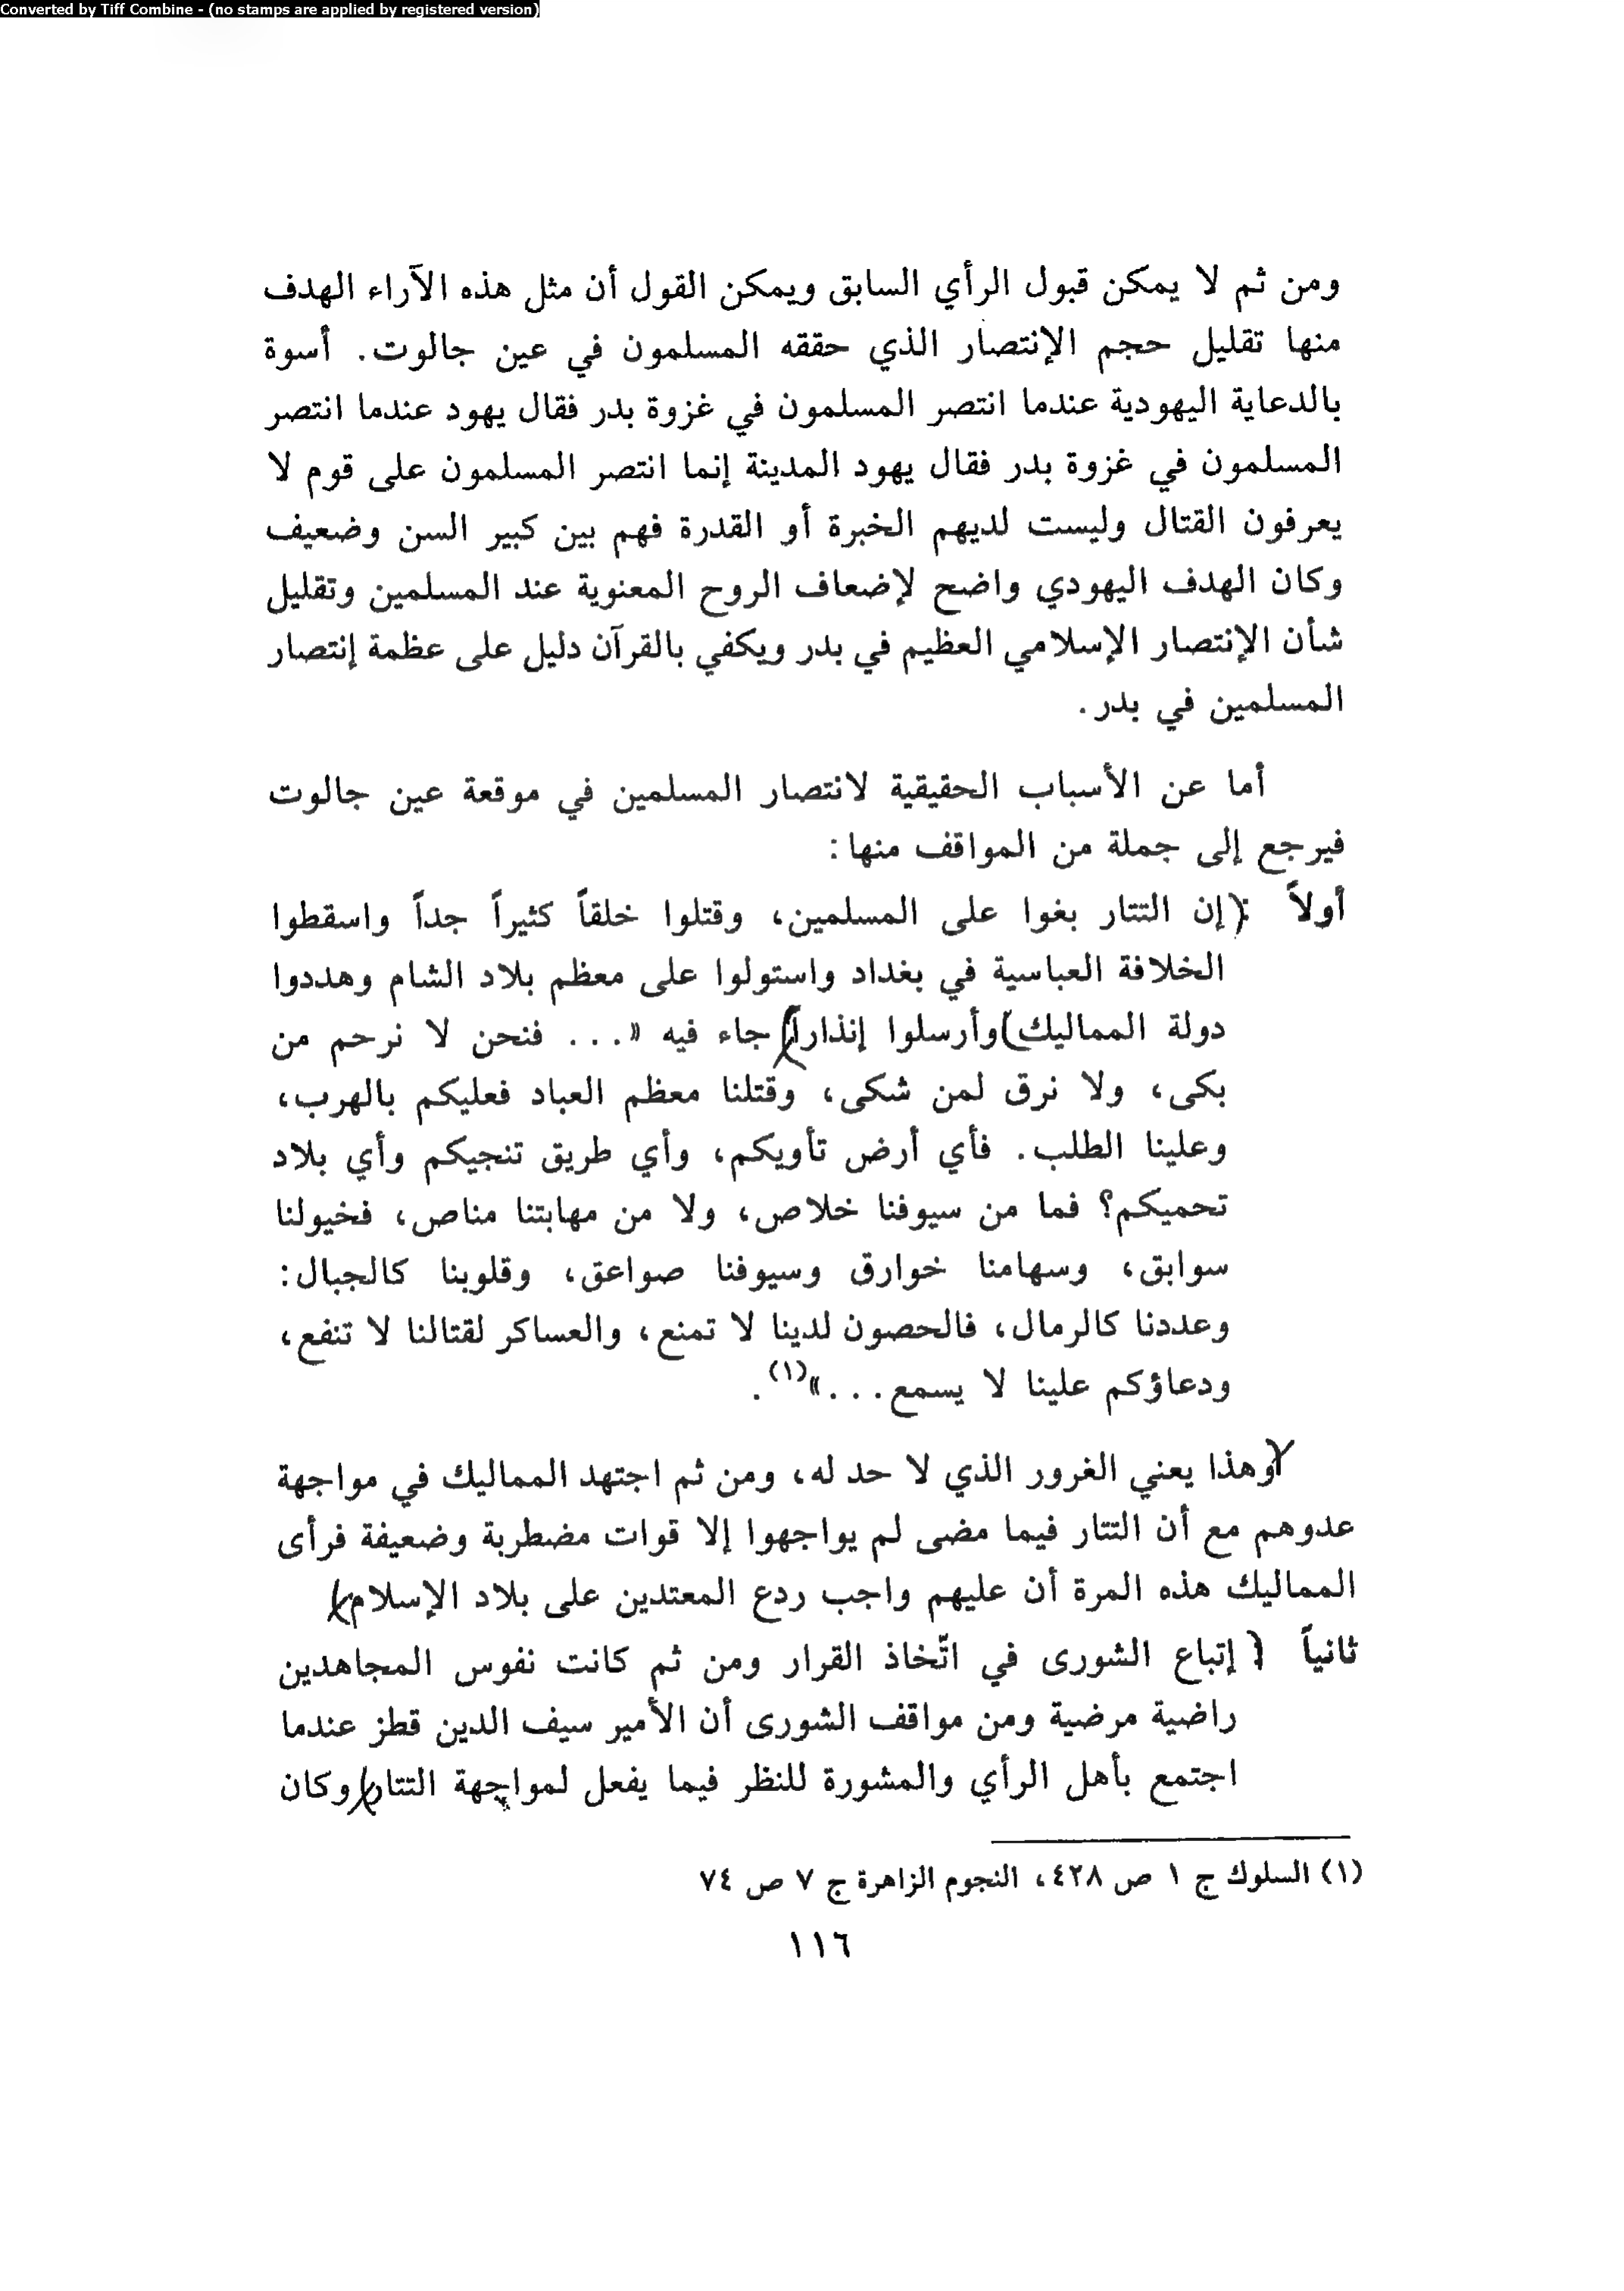 Converted by Tiff Combine - (no stamps are applied by registered version)
ومن ثم لا يمكن قبول الرأي السابق ويمكن القول أن مثل هذه الآراء الهدف
منها تقليل حجم الإنتصار الذي حققه المسلمون في عين جالوت. أسوة
بالدعاية اليهودية عندما انتصر المسلمون في غزوة بدر فقال يهود عندما انتصر
المسلمون في غزوة بدر فقال يهود المدينة إنما انتصر المسلمون على قوم لا
يعرفون القتال وليست لديهم الخبرة أو القدرة فهم بين كبير السن وضعيف
وكان الهدف اليهودي واضح لإضعاف الروح المعنوية عند المسلمين وتقليل
شأن الإنتصار الإسلامي العظيم في بدر ويكفي بالقرآن دليل على عظمة إنتصار
المسلمين في بدر.
أما عن الأسباب الحقيقية لانتصار المسلمين في موقعة عين جالوت
فيرجع إلى جملة من المواقف منها:
أولاً : إن التتار بغوا على المسلمين، وقتلوا خلقاً كثيراً جداً واسقطوا
الخلافة العباسية في بغداد واستولوا على معظم بلاد الشام وهددوا
دولة المماليك وأرسلوا إنذاراً جاء فيه «... فنحن لا نرحم من
بكى، ولا نرق لمن شكى، وقتلنا معظم العباد فعليكم بالهرب،
وعلينا الطلب. فأي أرض تأويكم، وأي طريق تنجيكم وأي بلاد
تحميكم؟ فما من سيوفنا خلاص، ولا من مهابتنا مناص، فخيولنا
سوابق، وسهامنا خوارق وسيوفنا صواعق، وقلوبنا كالجبال:
وعددنا كالرمال، فالحصون لدينا لا تمنع، والعساكر لقتالنا لا تنفع،
ودعاؤكم علينا لا يسمع...»(١).
وهذا يعني الغرور الذي لا حد له، ومن ثم اجتهد المماليك في مواجهة
عدوهم مع أن التتار فيما مضى لم يواجهوا إلا قوات مضطربة وضعيفة فرأى
المماليك هذه المرة أن عليهم واجب ردع المعتدين على بلاد الإسلام
ثانياً : إتباع الشورى في اتّخاذ القرار ومن ثم كانت نفوس المجاهدين
راضية مرضية ومن مواقف الشورى أن الأمير سيف الدين قطز عندما
اجتمع بأهل الرأي والمشورة للنظر فيما يفعل لمواجهة التتار وكان
(١) السلوك ج ١ ص ٤٢٨، النجوم الزاهرة ج ٧ ص ٧٤
١١٦